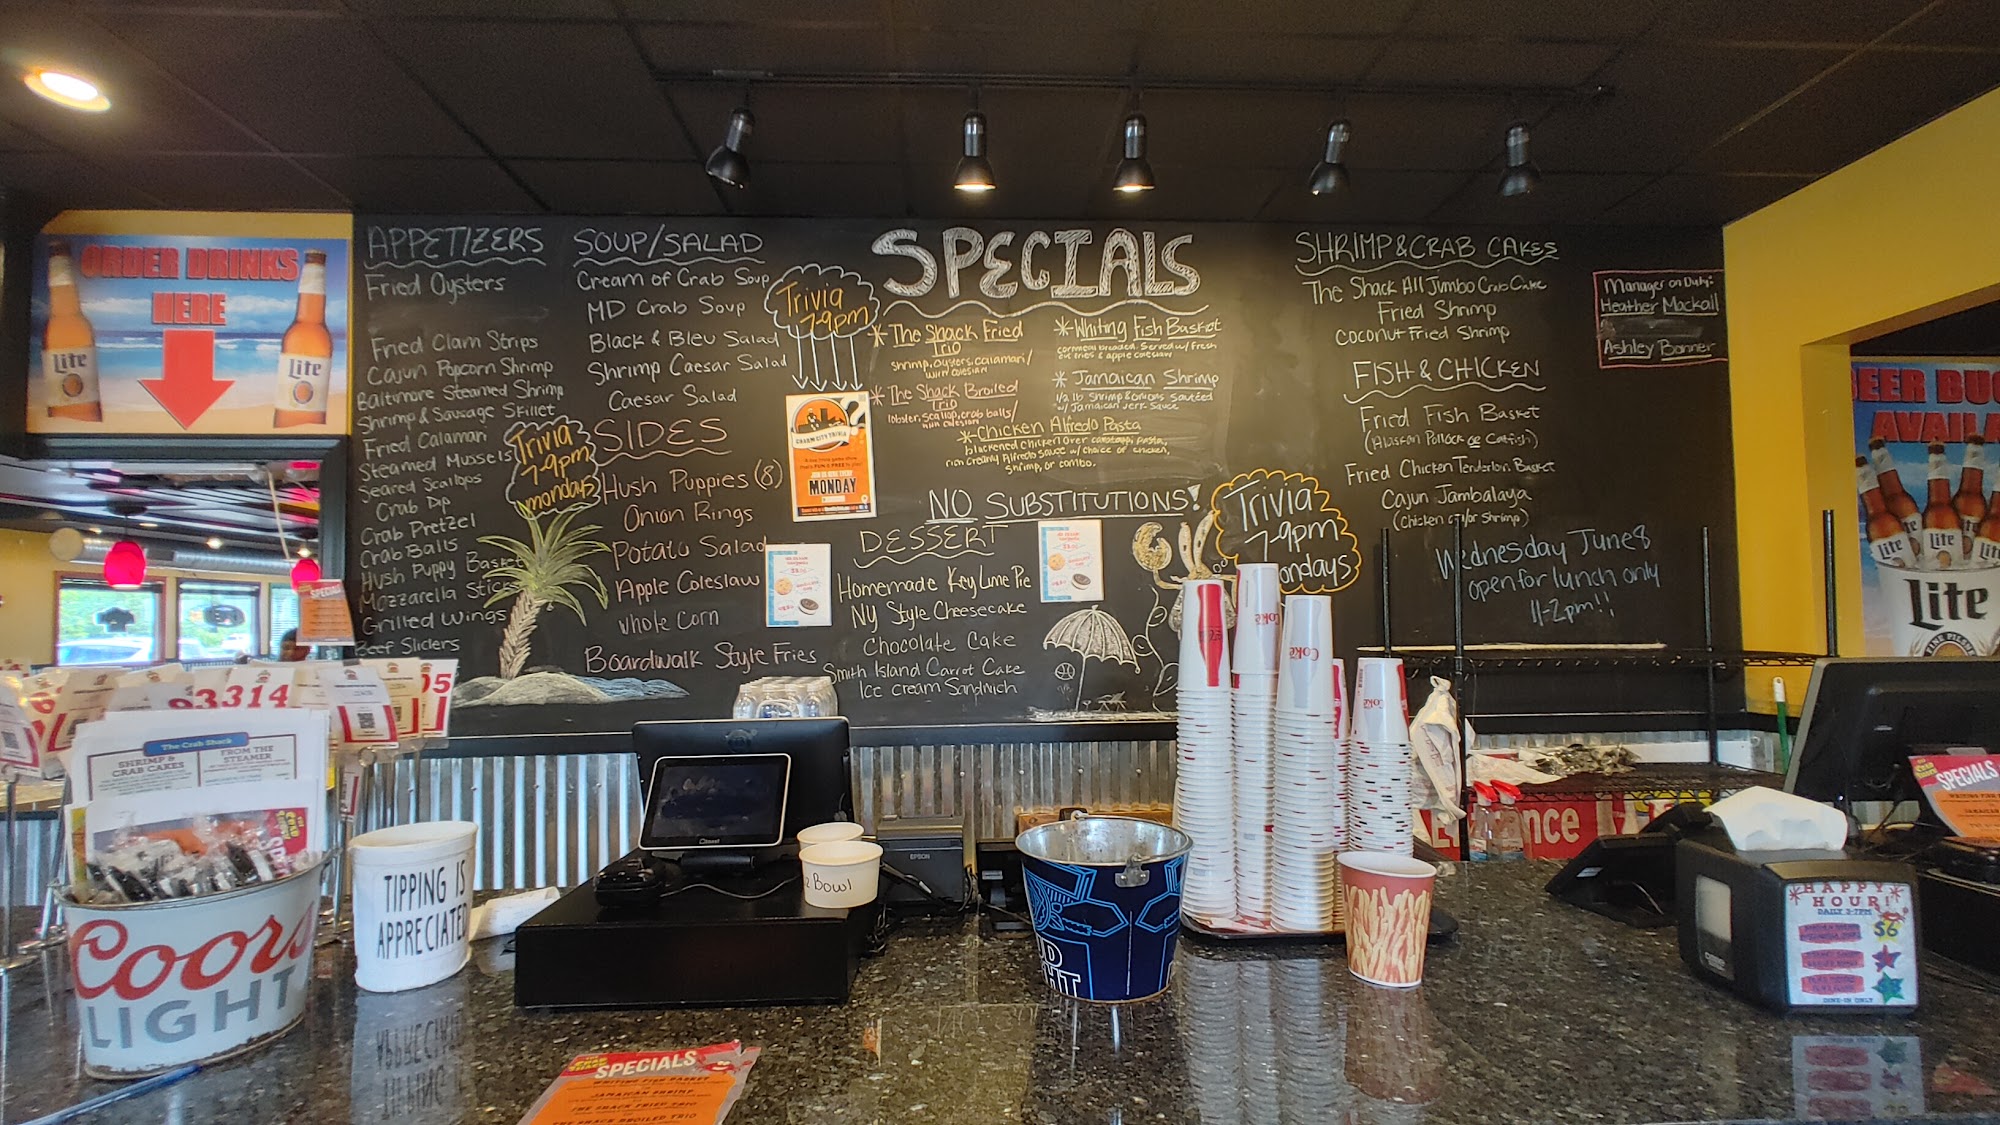 ORDER DRINKS
HERE
Lite
Lite
APPETIZERS
Fried Oysters
Fried Clam Strips
Cajun Popcorn Shrimp
Baltimore Steamed Shrimp
Shrimp & Sausage Skillet
Fried Calamari
Steamed Mussels
Seared Scallops
Crab Dip
Crab Pretzel
Crab Balls
Hush Puppy Basket
Mozzarella Sticks
Grilled Wings
Beef Sliders
Trivia
7-9pm
mondays
SOUP/SALAD
Cream of Crab Soup
MD Crab Soup
Black & Bleu Salad
Shrimp Caesar Salad
Caesar Salad
SIDES
Hush Puppies (8)
Onion Rings
Potato Salad
Apple Coleslaw
Whole Corn
Boardwalk Style Fries
Trivia
7-9pm
CHARM CITY TRIVIA
MONDAY
SPECIALS
* The Shack Fried
Trio
shrimp, oysters, calamari/
with coleslaw
* The Shack Broiled
Trio
lobster, scallop, crab balls/
with coleslaw
* Whiting Fish Basket
cornmeal breaded. Served w/ fresh
cut fries & apple coleslaw
* Jamaican Shrimp
1/2 lb Shrimp & onions sautéed
w/ Jamaican Jerk Sauce
* Chicken Alfredo Pasta
blackened chicken over cavatappi pasta,
rich creamy Alfredo sauce w/ choice of chicken,
shrimp, or combo.
NO SUBSTITUTIONS!
DESSERT
Homemade Key Lime Pie
NY Style Cheesecake
Chocolate Cake
Smith Island Carrot Cake
Ice cream Sandwich
Trivia
7-9pm
ondays
SHRIMP & CRAB CAKES
The Shack All Jumbo Crab Cake
Fried Shrimp
Coconut Fried Shrimp
FISH & CHICKEN
Fried Fish Basket
(Alaskan Pollock or Catfish)
Fried Chicken Tenderloin Basket
Cajun Jambalaya
(Chicken &/or Shrimp)
Wednesday June 8
open for lunch only
11-2pm!!
Manager on Duty:
Heather Mackall
Ashley Bonner
BEER BUC
AVAILA
Lite
Lite
Lite
Lite
A FINE PILSNER
SPECIAL
93314
05
The Crab Shack
SHRIMP &
CRAB CAKES
FROM THE
STEAMER
Coors
LIGHT
TIPPING IS
APPRECIATED
EPSON
Bowl
UD
GHT
Coke
Coke
Coke
Entrance
HAPPY
HOUR!
DAILY 3-7PM
$6
DINE-IN ONLY
SPECIALS
SPECIALS
WHITING FISH BASKET
JAMAICAN SHRIMP
THE SHACK FRIED TRIO
THE SHACK BROILED TRIO